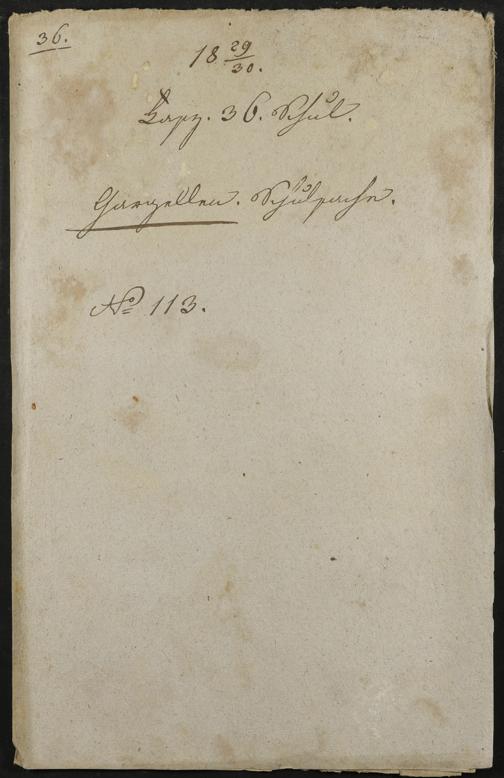 36.
18 29/30.
Fasz. 36. Schul.
Gargellen. Schulsache.
No 113.